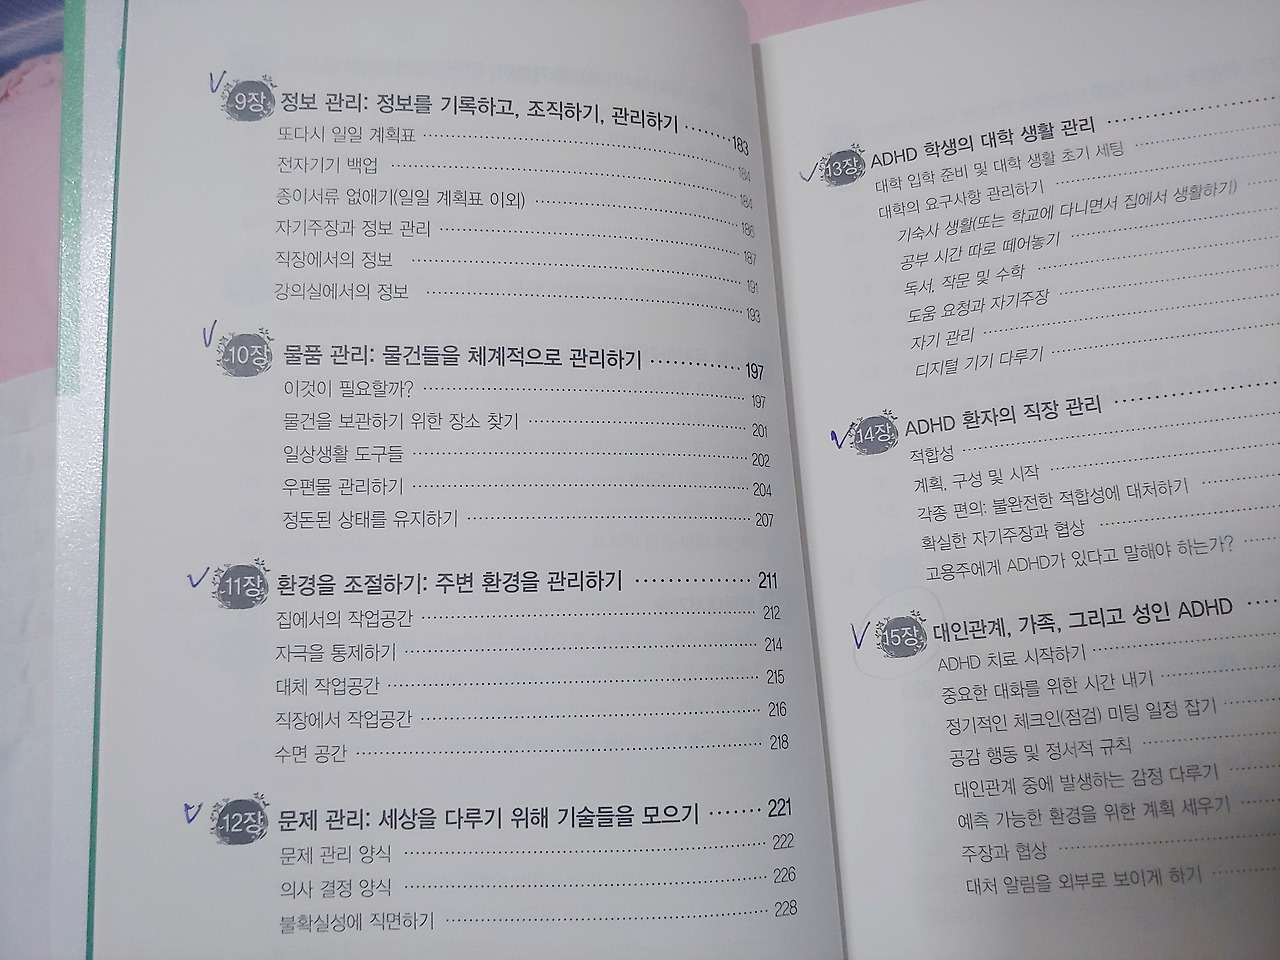 9장 정보 관리: 정보를 기록하고, 조직하기, 관리하기 ······· 183
또다시 일일 계획표 ······· 184
전자기기 백업 ······· 184
종이서류 없애기(일일 계획표 이외) ······· 186
자기주장과 정보 관리 ······· 187
직장에서의 정보 ······· 191
강의실에서의 정보 ······· 193
10장 물품 관리: 물건들을 체계적으로 관리하기 ······· 197
이것이 필요할까? ······· 197
물건을 보관하기 위한 장소 찾기 ······· 201
일상생활 도구들 ······· 202
우편물 관리하기 ······· 204
정돈된 상태를 유지하기 ······· 207
11장 환경을 조절하기: 주변 환경을 관리하기 ······· 211
집에서의 작업공간 ······· 212
자극을 통제하기 ······· 214
대체 작업공간 ······· 215
직장에서 작업공간 ······· 216
수면 공간 ······· 218
12장 문제 관리: 세상을 다루기 위해 기술들을 모으기 ······· 221
문제 관리 양식 ······· 222
의사 결정 양식 ······· 226
불확실성에 직면하기 ······· 228
13장 ADHD 학생의 대학 생활 관리 ·······
대학 입학 준비 및 대학 생활 초기 세팅 ·······
대학의 요구사항 관리하기 ·······
기숙사 생활(또는 학교에 다니면서 집에서 생활하기) ·······
공부 시간 따로 떼어놓기 ·······
독서, 작문 및 수학 ·······
도움 요청과 자기주장 ·······
자기 관리 ·······
디지털 기기 다루기 ·······
14장 ADHD 환자의 직장 관리 ·······
적합성 ·······
계획, 구성 및 시작 ·······
각종 편의: 불완전한 적합성에 대처하기 ·······
확실한 자기주장과 협상 ·······
고용주에게 ADHD가 있다고 말해야 하는가? ·······
15장 대인관계, 가족, 그리고 성인 ADHD ·······
ADHD 치료 시작하기 ·······
중요한 대화를 위한 시간 내기 ·······
정기적인 체크인(점검) 미팅 일정 잡기 ·······
공감 행동 및 정서적 규칙 ·······
대인관계 중에 발생하는 감정 다루기 ·······
예측 가능한 환경을 위한 계획 세우기 ·······
주장과 협상 ·······
대처 알림을 외부로 보이게 하기 ·······